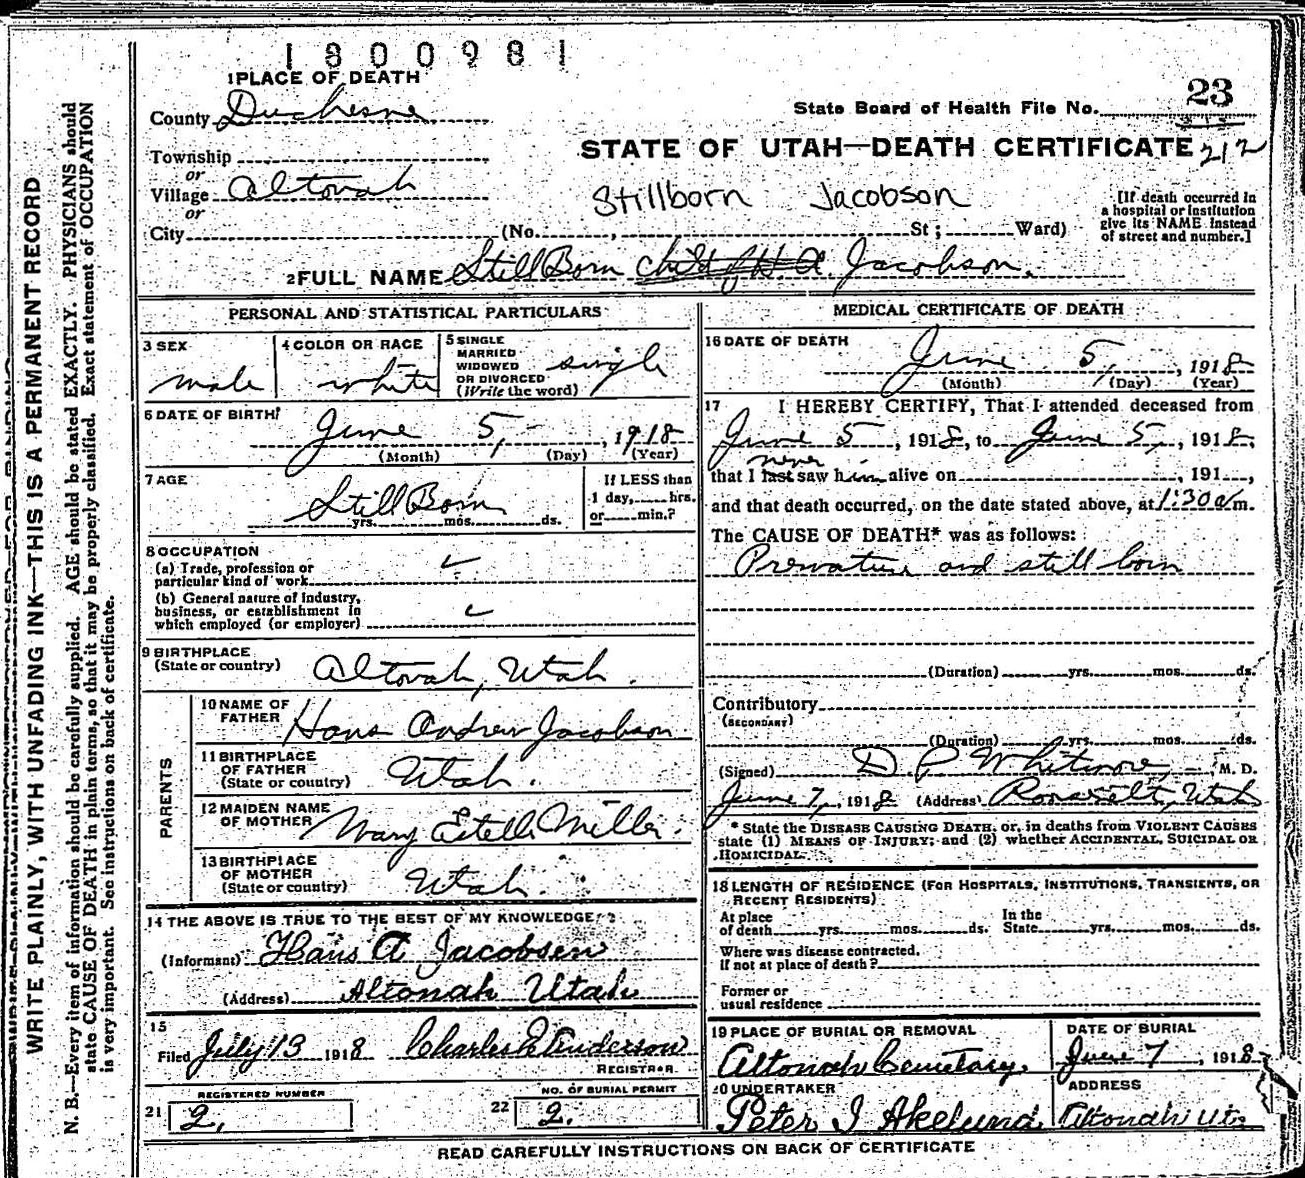 1800981
1 PLACE OF DEATH
County Duchesne
State Board of Health File No. 23
Township
STATE OF UTAH—DEATH CERTIFICATE 212
or
Village Altonah
Stillborn Jacobson
or
City (No. , St; Ward)
[If death occurred in
a hospital or institution
give its NAME instead
of street and number.]
2 FULL NAME Still Born child of H. A. Jacobson.
PERSONAL AND STATISTICAL PARTICULARS
3 SEX
male
4 COLOR OR RACE
white
5 SINGLE
MARRIED
WIDOWED
OR DIVORCED
(Write the word)
single
6 DATE OF BIRTH
June 5, 1918
(Month) (Day) (Year)
7 AGE
Still Born
yrs. mos. ds.
If LESS than
1 day, hrs.
or min.?
8 OCCUPATION
(a) Trade, profession or
particular kind of work
(b) General nature of industry,
business, or establishment in
which employed (or employer)
9 BIRTHPLACE
(State or country)
Altonah, Utah.
PARENTS
10 NAME OF
FATHER
Hans Andrew Jacobson
11 BIRTHPLACE
OF FATHER
(State or country)
Utah.
12 MAIDEN NAME
OF MOTHER
Mary Estella Miller.
13 BIRTHPLACE
OF MOTHER
(State or country)
Utah.
14 THE ABOVE IS TRUE TO THE BEST OF MY KNOWLEDGE
(Informant) Hans A Jacobsen
(Address) Altonah Utah
15
Filed July 13 1918 Charles E Anderson
REGISTRAR
REGISTERED NUMBER
21 2,
NO. OF BURIAL PERMIT
22 2.
MEDICAL CERTIFICATE OF DEATH
16 DATE OF DEATH
June 5, 1918
(Month) (Day) (Year)
17 I HEREBY CERTIFY, That I attended deceased from
June 5, 1918, to June 5, 1918,
never
that I last saw him alive on , 191 ,
and that death occurred, on the date stated above, at 1:30 a m.
The CAUSE OF DEATH* was as follows:
Premature and still born
(Duration) yrs. mos. ds.
Contributory
(SECONDARY)
(Duration) yrs. mos. ds.
(Signed) D. P. Whitmore, M. D.
June 7, 1918 (Address) Roosevelt, Utah
* State the DISEASE CAUSING DEATH, or, in deaths from VIOLENT CAUSES
state (1) MEANS OF INJURY; and (2) whether ACCIDENTAL, SUICIDAL OR
HOMICIDAL.
18 LENGTH OF RESIDENCE (FOR HOSPITALS, INSTITUTIONS, TRANSIENTS, OR
RECENT RESIDENTS)
At place
of death yrs. mos. ds.
In the
State yrs. mos. ds.
Where was disease contracted,
if not at place of death?
Former or
usual residence
19 PLACE OF BURIAL OR REMOVAL
Altonah Cemetary.
DATE OF BURIAL
June 7, 1918
20 UNDERTAKER
Peter J Akelund.
ADDRESS
Altonah Ut.
READ CAREFULLY INSTRUCTIONS ON BACK OF CERTIFICATE
WRITE PLAINLY, WITH UNFADING INK—THIS IS A PERMANENT RECORD
N. B.—Every item of information should be carefully supplied. AGE should be stated EXACTLY. PHYSICIANS should
state CAUSE OF DEATH in plain terms, so that it may be properly classified. Exact statement of OCCUPATION
is very important. See instructions on back of certificate.